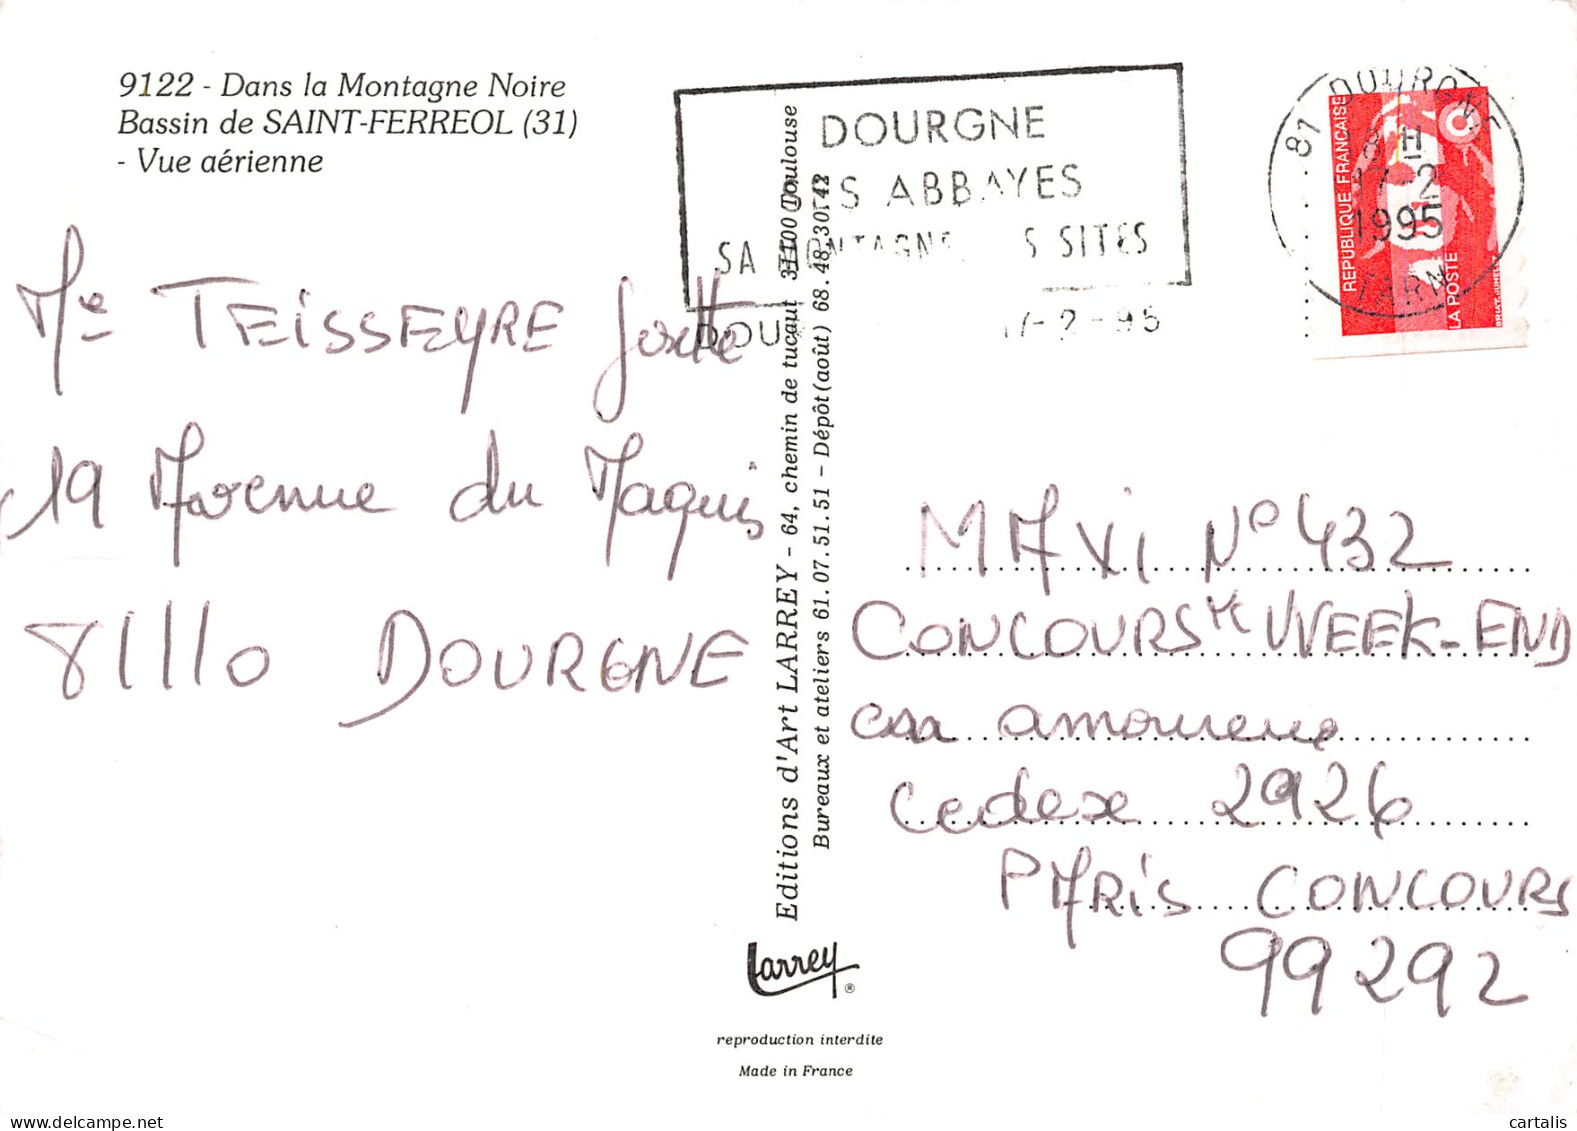 9122 - Dans la Montagne Noire
Bassin de SAINT-FERREOL (31)
- Vue aérienne
DOURGNE
S ABBAYES
SA MONTAGNE S SITES
DOU 17-2-95
81 DOURGNE
18 H
17-2
1995
TARN
REPUBLIQUE FRANÇAISE
LA POSTE
Me TEISSEYRE Josette
19 Avenue du Maquis
81110 DOURGNE
Editions d'Art LARREY - 64, chemin de tucaut 31100 Toulouse
Bureaux et ateliers 61.07.51.51 - Dépôt (août) 68.48.30.42
MAXI N° 432
CONCOURS WEEK-END
amoureux
Cedex 2926
PARIS CONCOURS
99292
Larrey ®
reproduction interdite
Made in France
cartalis